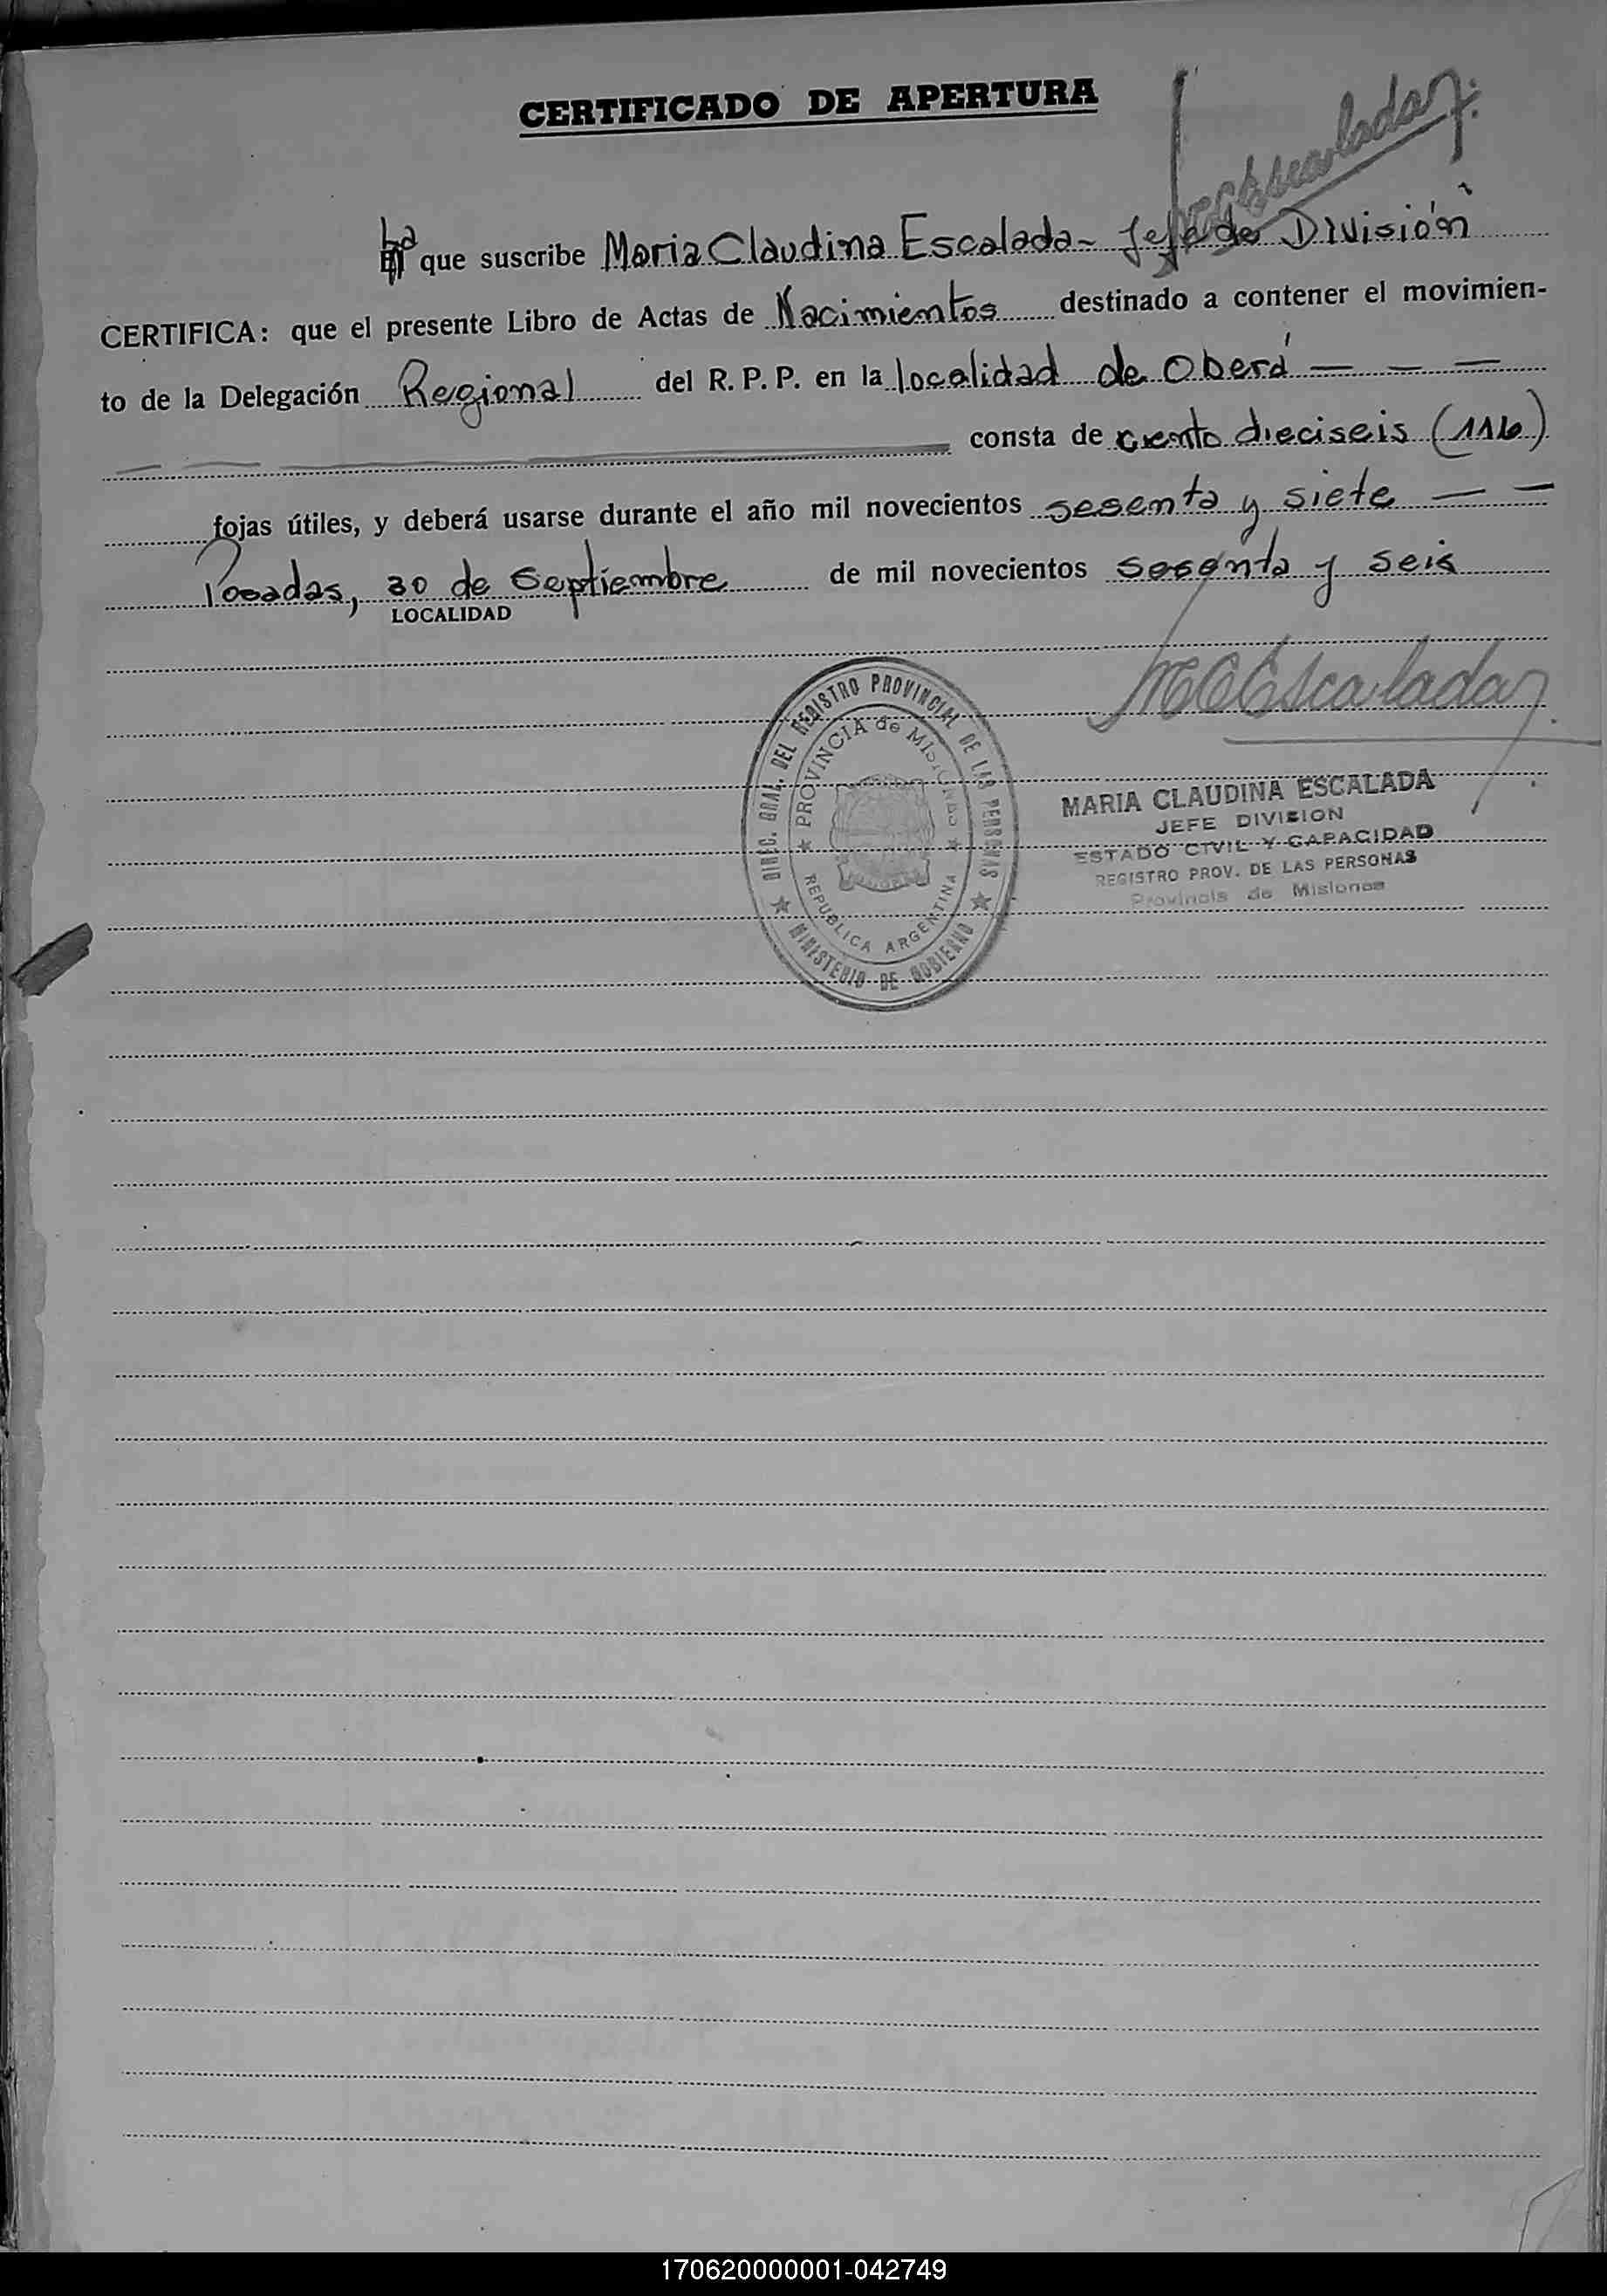 CERTIFICADO DE APERTURA
Escalada
La que suscribe Maria Claudina Escalada - Jefe de División
CERTIFICA: que el presente Libro de Actas de Nacimientos destinado a contener el movimien-
to de la Delegación Regional del R. P. P. en la localidad de Oberá — — —
consta de ciento dieciseis (116)
fojas útiles, y deberá usarse durante el año mil novecientos sesenta y siete — —
Posadas, 30 de Septiembre de mil novecientos sesenta y seis
LOCALIDAD
MCEscalada
DIREC. GRAL. DEL REGISTRO PROVINCIAL DE LAS PERSONAS
PROVINCIA de MISIONES
REPUBLICA ARGENTINA
MINISTERIO DE GOBIERNO
MARIA CLAUDINA ESCALADA
JEFE DIVISION
ESTADO CIVIL Y CAPACIDAD
REGISTRO PROV. DE LAS PERSONAS
Provincia de Misiones
170620000001-042749